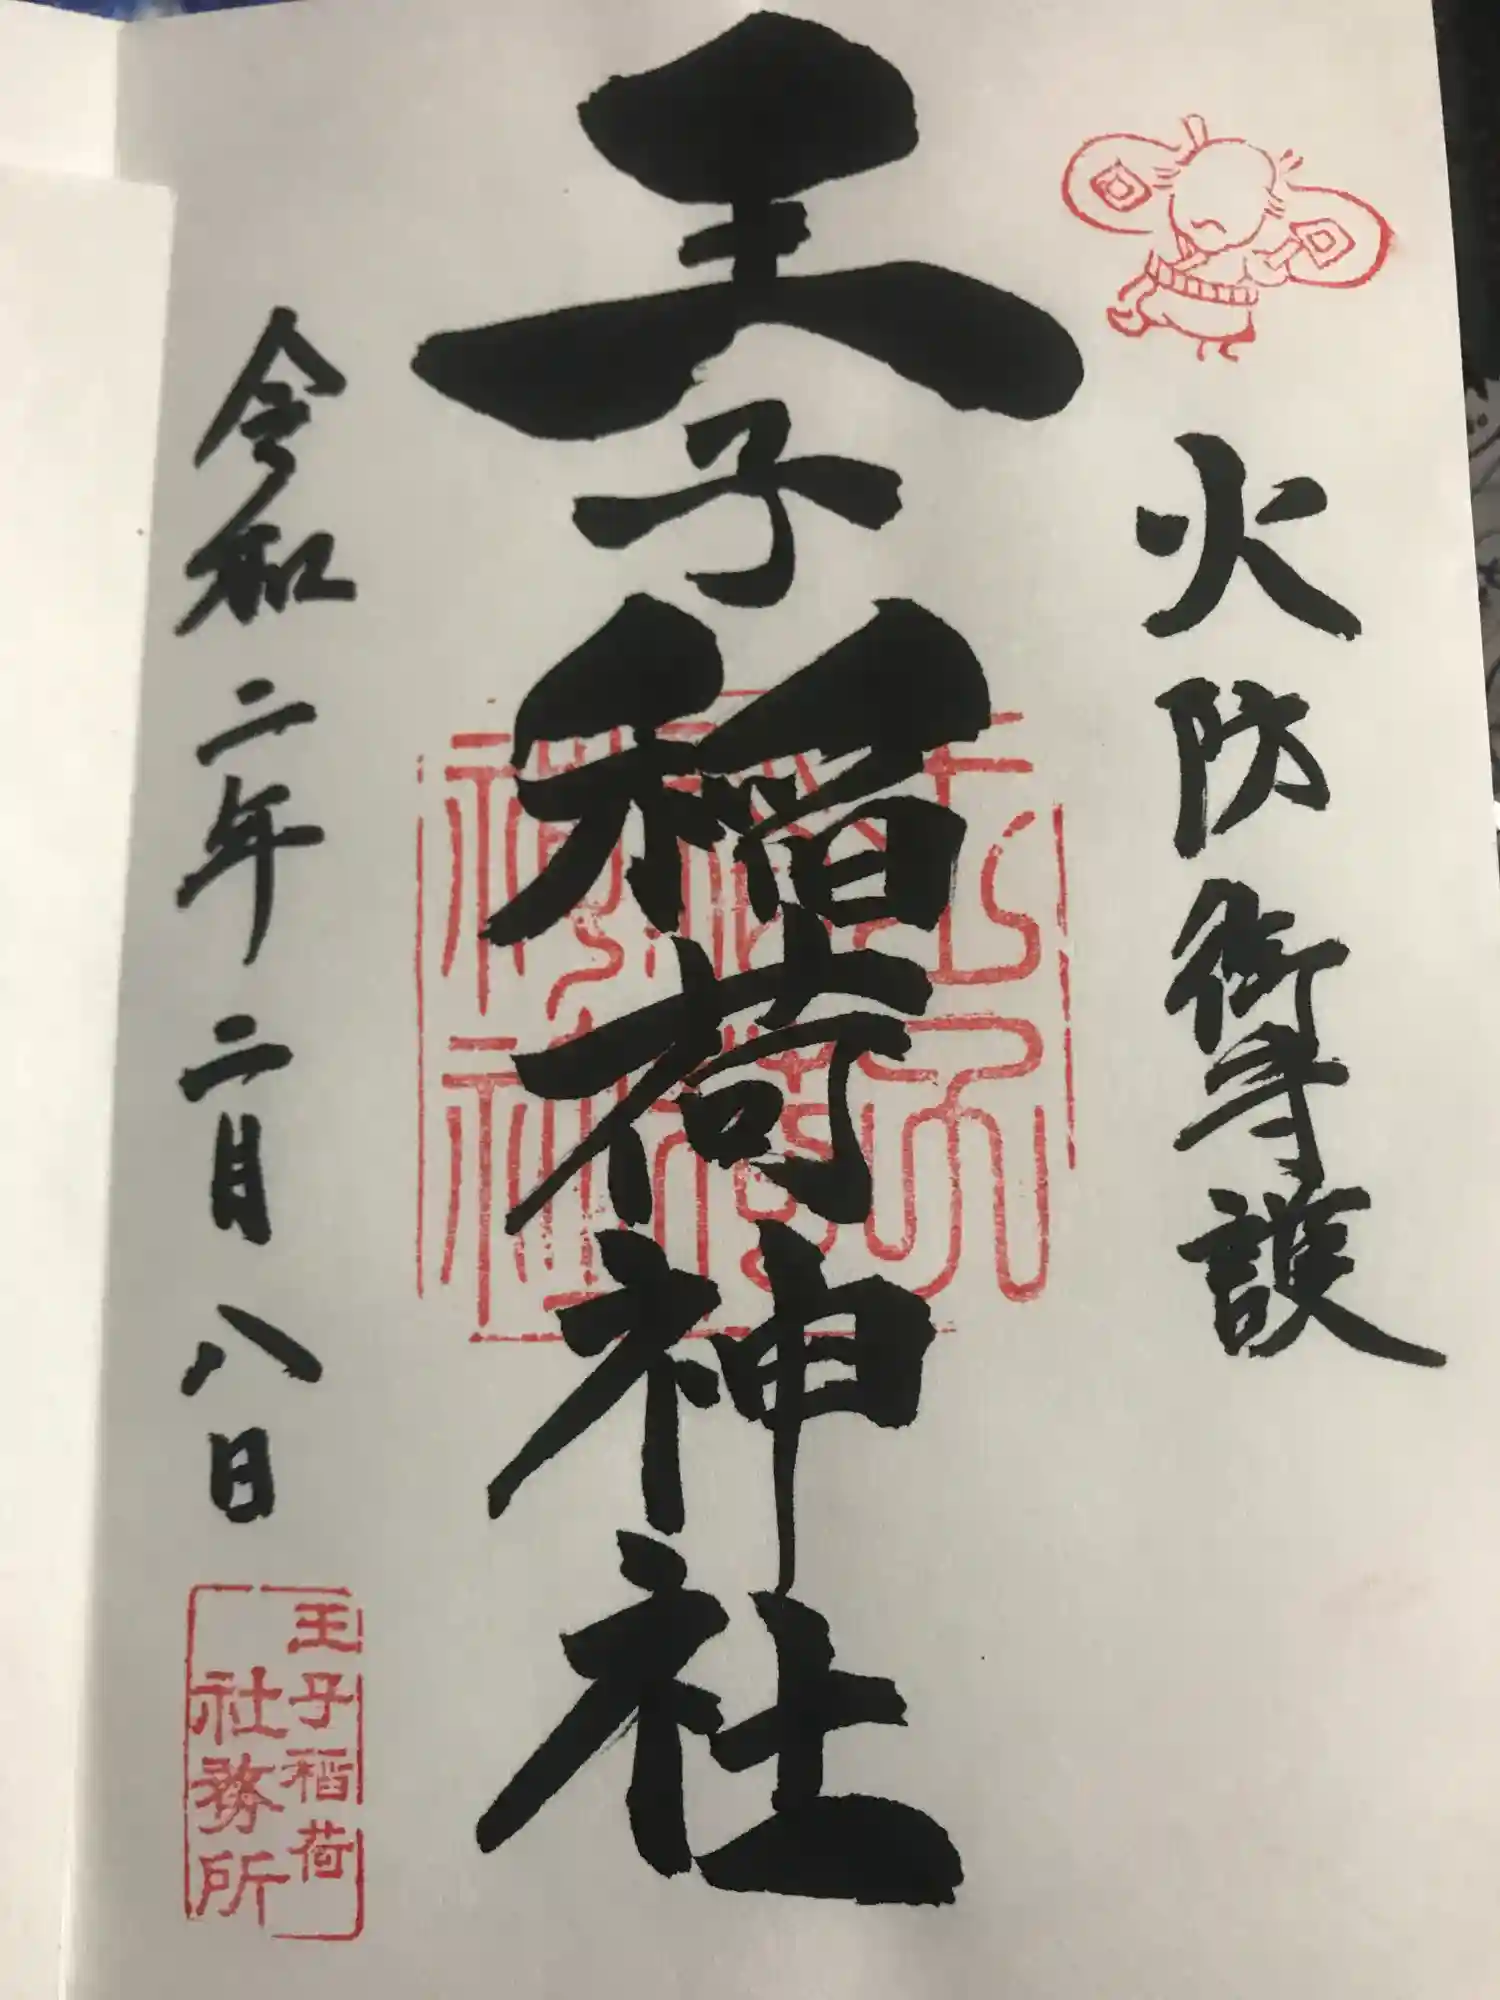 火防御守護
王子稲荷神社
王子稲荷神社
令和二年二月八日
王子稲荷
社務所